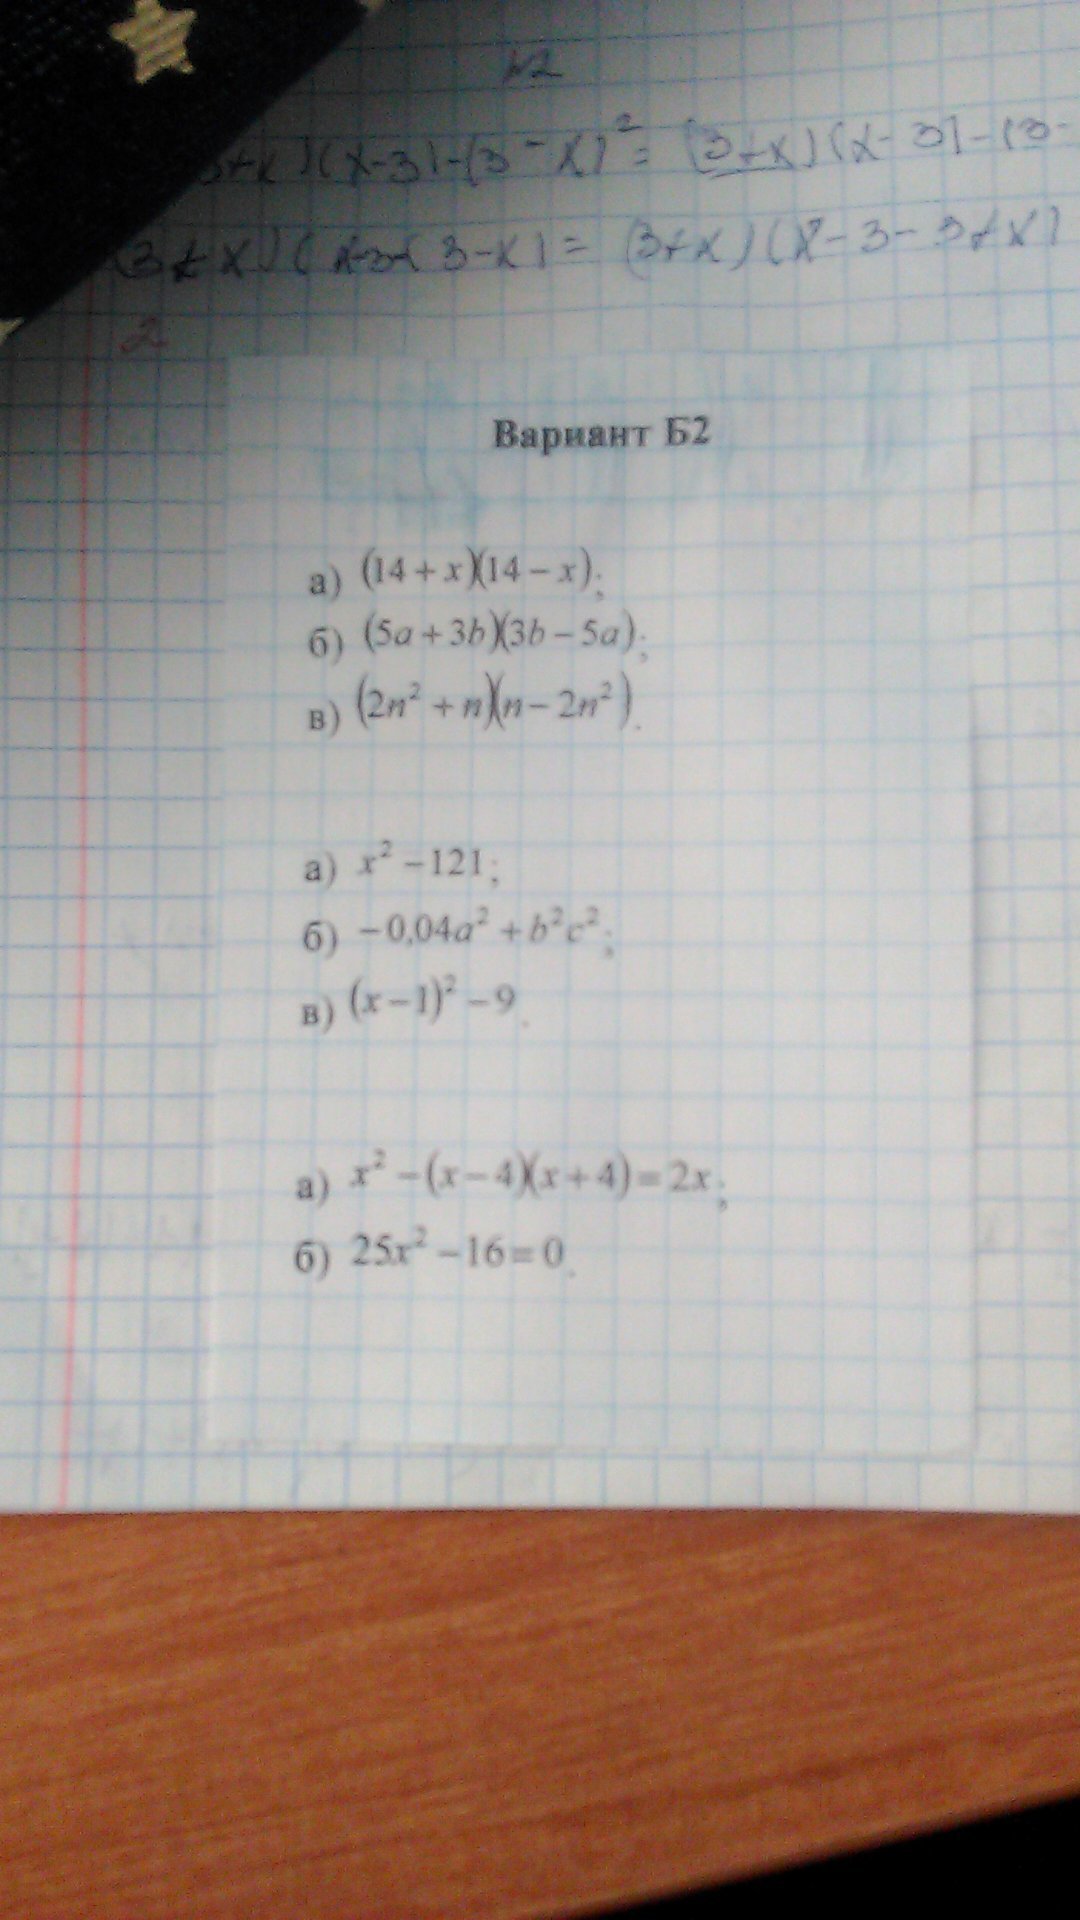 №2
3+x)(x-3)-(3-x)²= (3+x)(x-3)-(3-
(3+x)( 3-x)= (3+x)(x-3-3+x)
2
Вариант Б2
а) (14+x)(14-x);
б) (5a+3b)(3b-5a);
в) (2n²+n)(n-2n²).
а) x²-121;
б) -0,04a²+b²c²;
в) (x-1)²-9.
а) x²-(x-4)(x+4)=2x;
б) 25x²-16=0.